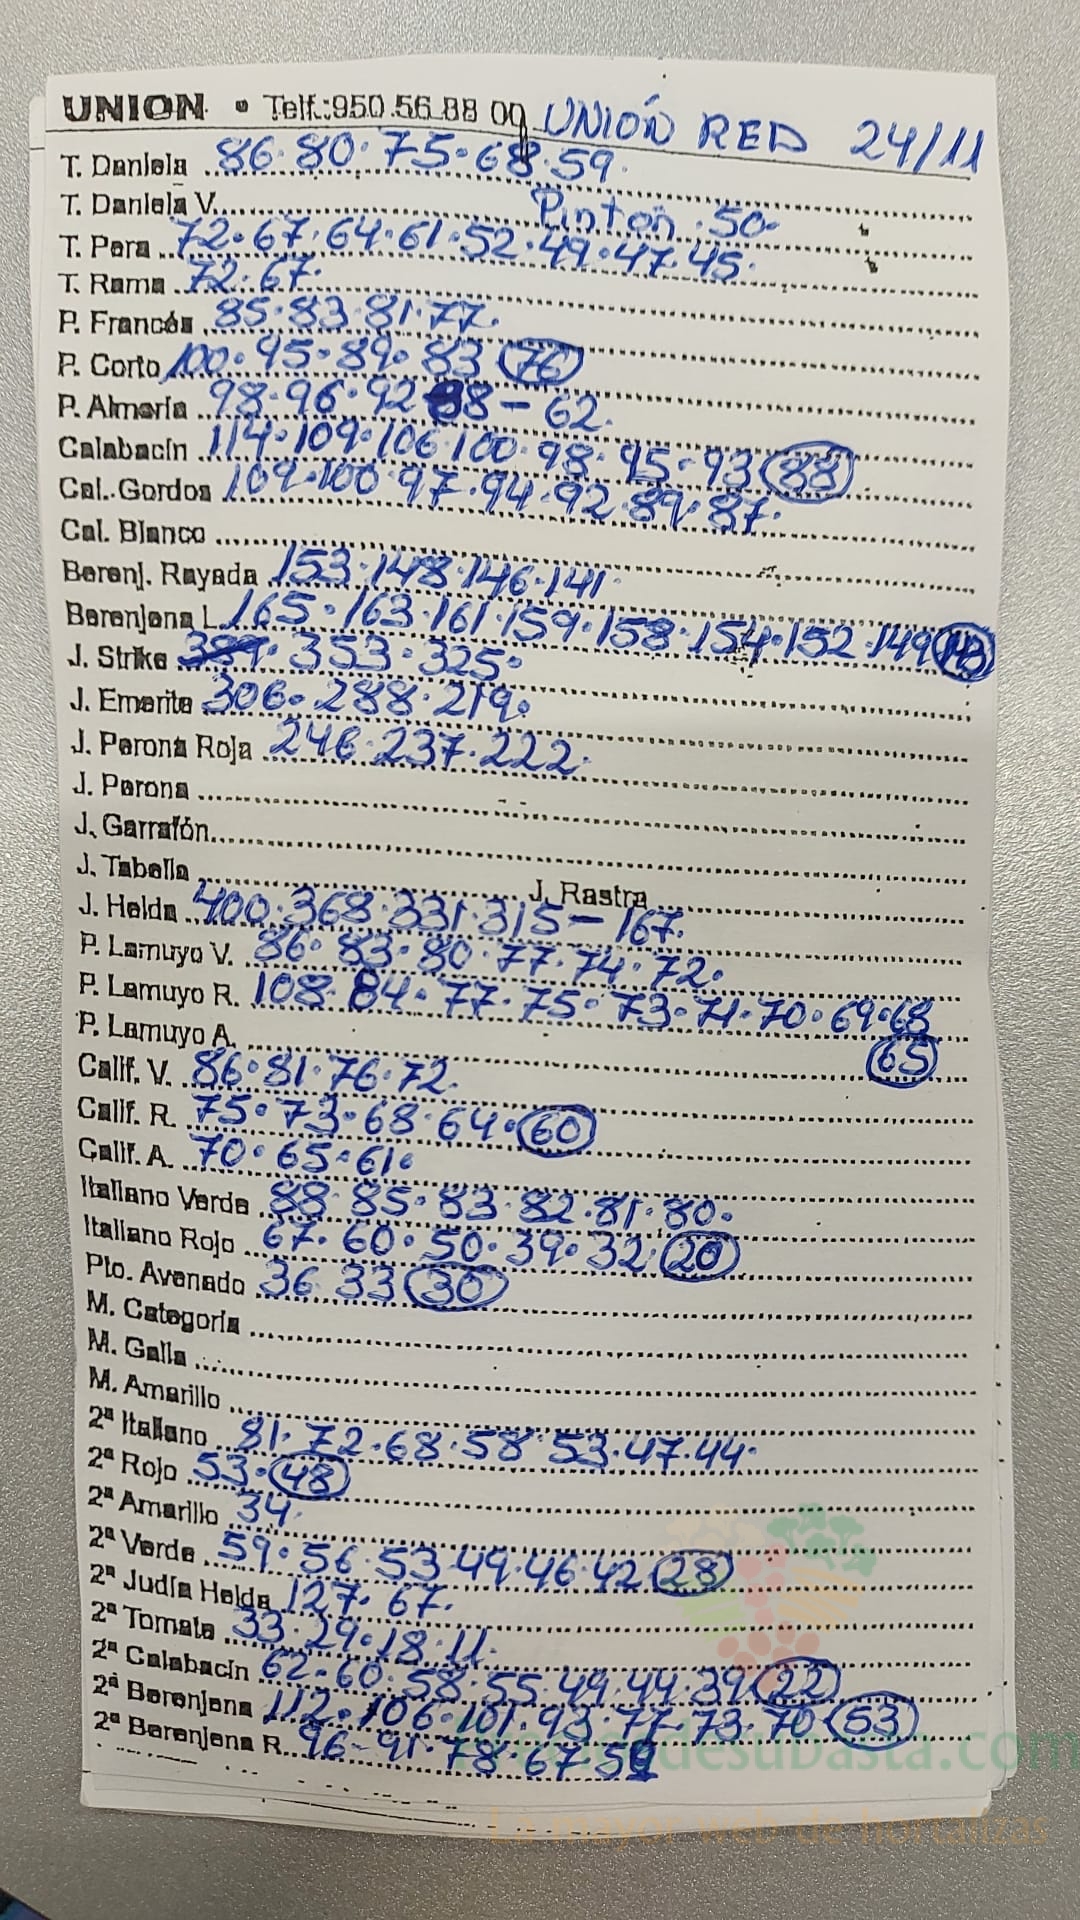 UNION • Telf.:950.56.88 00 UNIÓN RED 24/11
T. Daniela 86.80.75.68.59.
T. Daniela V. Pinton.50.
T. Pera 72.67.64.61.52.49.47.45.
T. Rama 72.67.
P. Francés 85.83.81.77.
P. Corto 100.95.89.83 76
P. Almería 98.96.92 88-62.
Calabacín 114.109.106.100.98.95.93 88
Cal. Gordos 109.100 97.94.92.89.87.
Cal. Blanco
Berenj. Rayada 153.148.146.141.
Berenjena L. 165.163.161.159.158.154.152.149
J. Strike 353.325.
J. Emerite 306.288.219.
J. Perona Roja 246.237.222.
J. Perona
J. Garrafón
J. Tabella J. Rastra
J. Helda 400.368.331.315-167.
P. Lamuyo V. 86.83.80.77.74.72.
P. Lamuyo R. 108.84.77.75.73.71.70.69.68
P. Lamuyo A. 65
Calif. V. 86.81.76.72.
Calif. R. 75.73.68.64.60
Calif. A. 70.65.61.
Italiano Verde 88.85.83.82.81.80.
Italiano Rojo 67.60.50.39.32.20
Pto. Avenado 36 33 30
M. Categoría
M. Galia
M. Amarillo
2ª Italiano 81.72.68.58.53.47.44.
2ª Rojo 53.48
2ª Amarillo 34.
2ª Verde 59.56.53.49.46.42 28
2ª Judía Helda 127.67.
2ª Tomate 33.29.18.11.
2ª Calabacín 62.60.58.55.49.44.39 22
2ª Berenjena 112.106.101.93.77.73.70 53
2ª Berenjena R. 96-91.78.67
desubasta.com
La mayor web de hortalizas